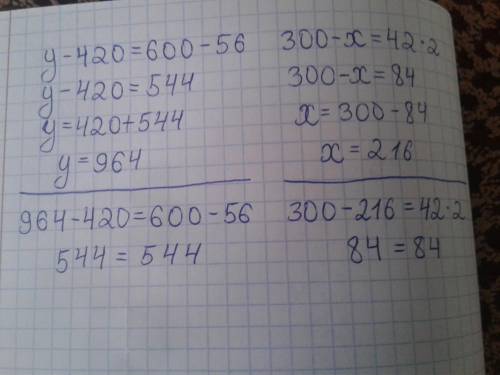 y-420=600-56
y-420=544
y=420+544
y=964
964-420=600-56
544=544
300-x=42·2
300-x=84
x=300-84
x=216
300-216=42·2
84=84